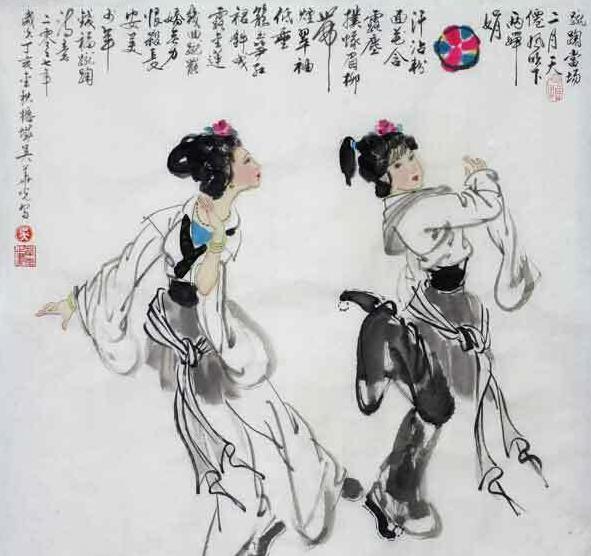 蹴鞠當場
二月天
僊風吹下
兩嬋
娟
汗沾粉
面花含
露塵
撲蛾眉柳
帶
煙翠袖
低垂
籠玉笋紅
裙斜曳
露金蓮
幾回蹴罷
嬌無力
恨殺長
安美
少年
錢福蹴鞠
詩意
二零零七年
歲次丁亥金秋 吴華